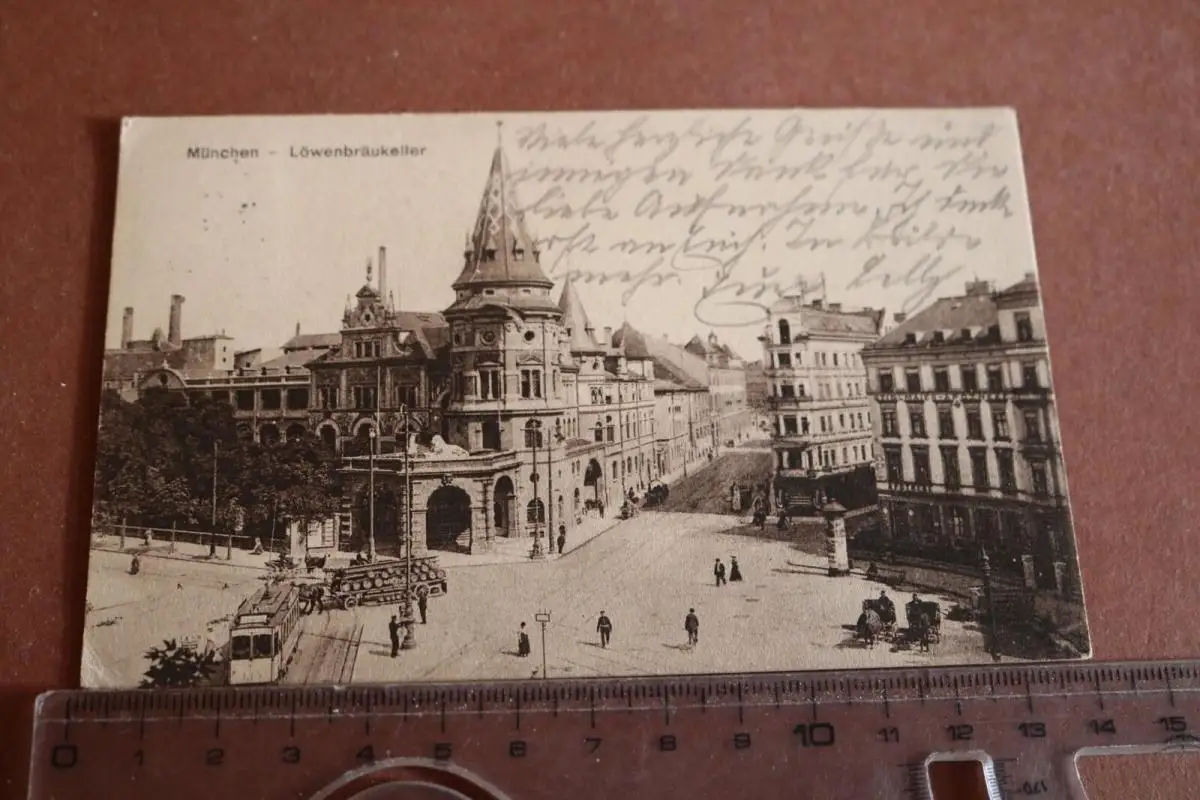 München - Löwenbräukeller
Viele herzliche Grüße und
innigen Dank für die
liebe Aufnahme. Ich denke
oft an Euch. In Bälde
mehr. Eure Lilly
0 1 2 3 4 5 6 7 8 9 10 11 12 13 14 15
170